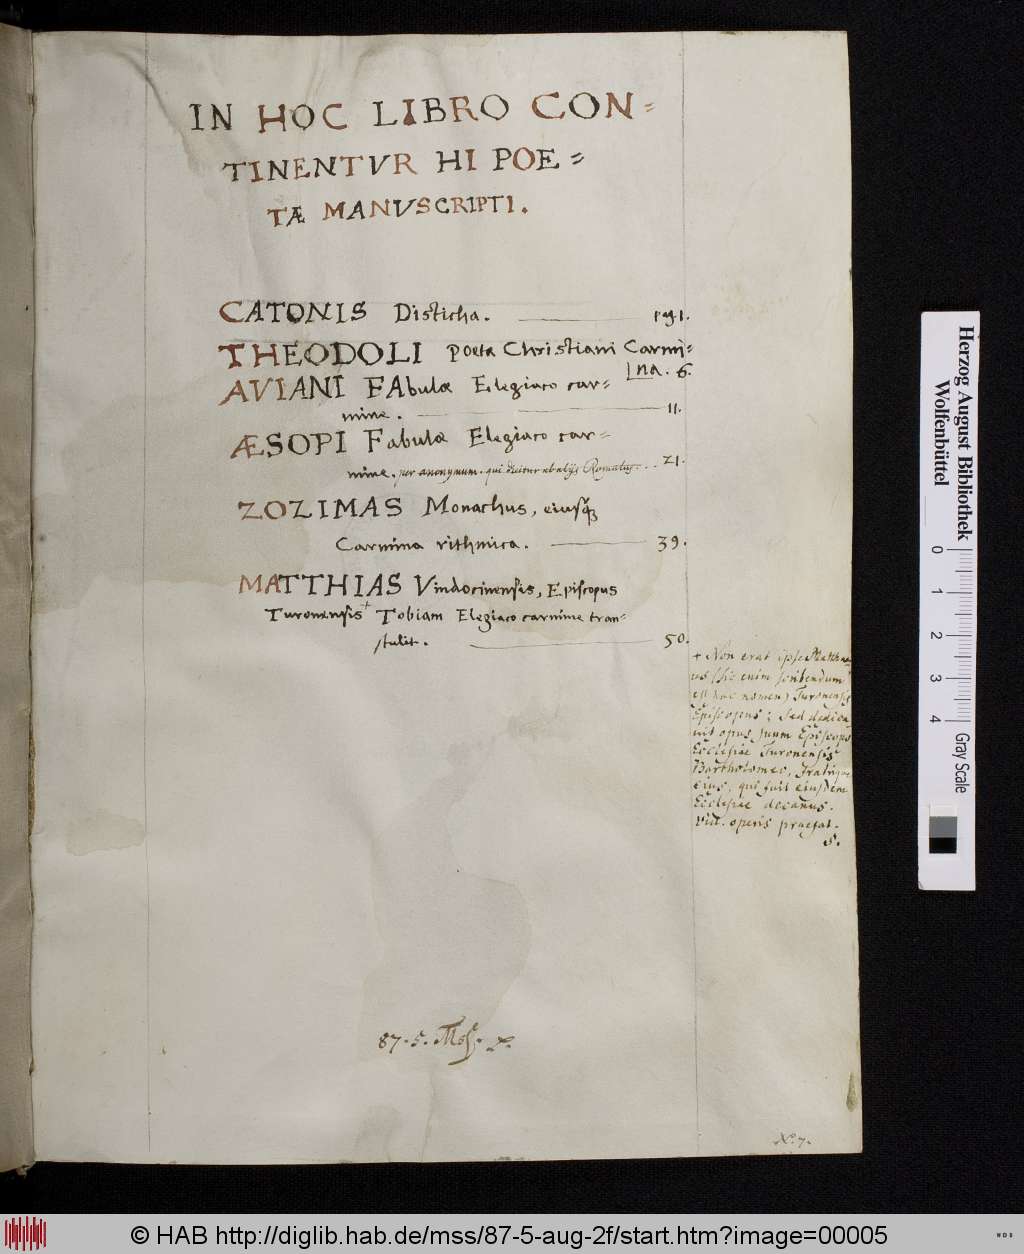 IN HOC LIBRO CON=
TINENTVR HI POE=
TÆ MANVSCRIPTI.
CATONIS Disticha. pag 1.
THEODOLI Poetæ Christiani Carmi=
na. 6.
AVIANI FAbulæ Elegiaco car=
mine. 11.
ÆSOPI Fabulæ Elegiaco car=
mine. per anonymum. qui dicitur ab alijs Romulus. 21.
ZOZIMAS Monachus, eiusq;
Carmina rithmica. 39.
MATTHIAS Vindocinensis, Episcopus
Turonensis + Tobiam Elegiaco carmine tran=
stulit. 50.
+ Non erat ipse Matthæ
us (sic enim scribendum
est hoc nomen) Turonensis
Episcopus; sed dedica
vit opus suum Episcopo
Ecclesiæ Turonensis
Bartholomeo, fratrique
eius, qui fuit eiusdem
Ecclesiæ decanus.
vid. operis praefat.
S.
87.5. MSS.
N. 7.
Herzog August Bibliothek
Wolfenbüttel
0 1 2 3 4 Gray Scale
© HAB http://diglib.hab.de/mss/87-5-aug-2f/start.htm?image=00005